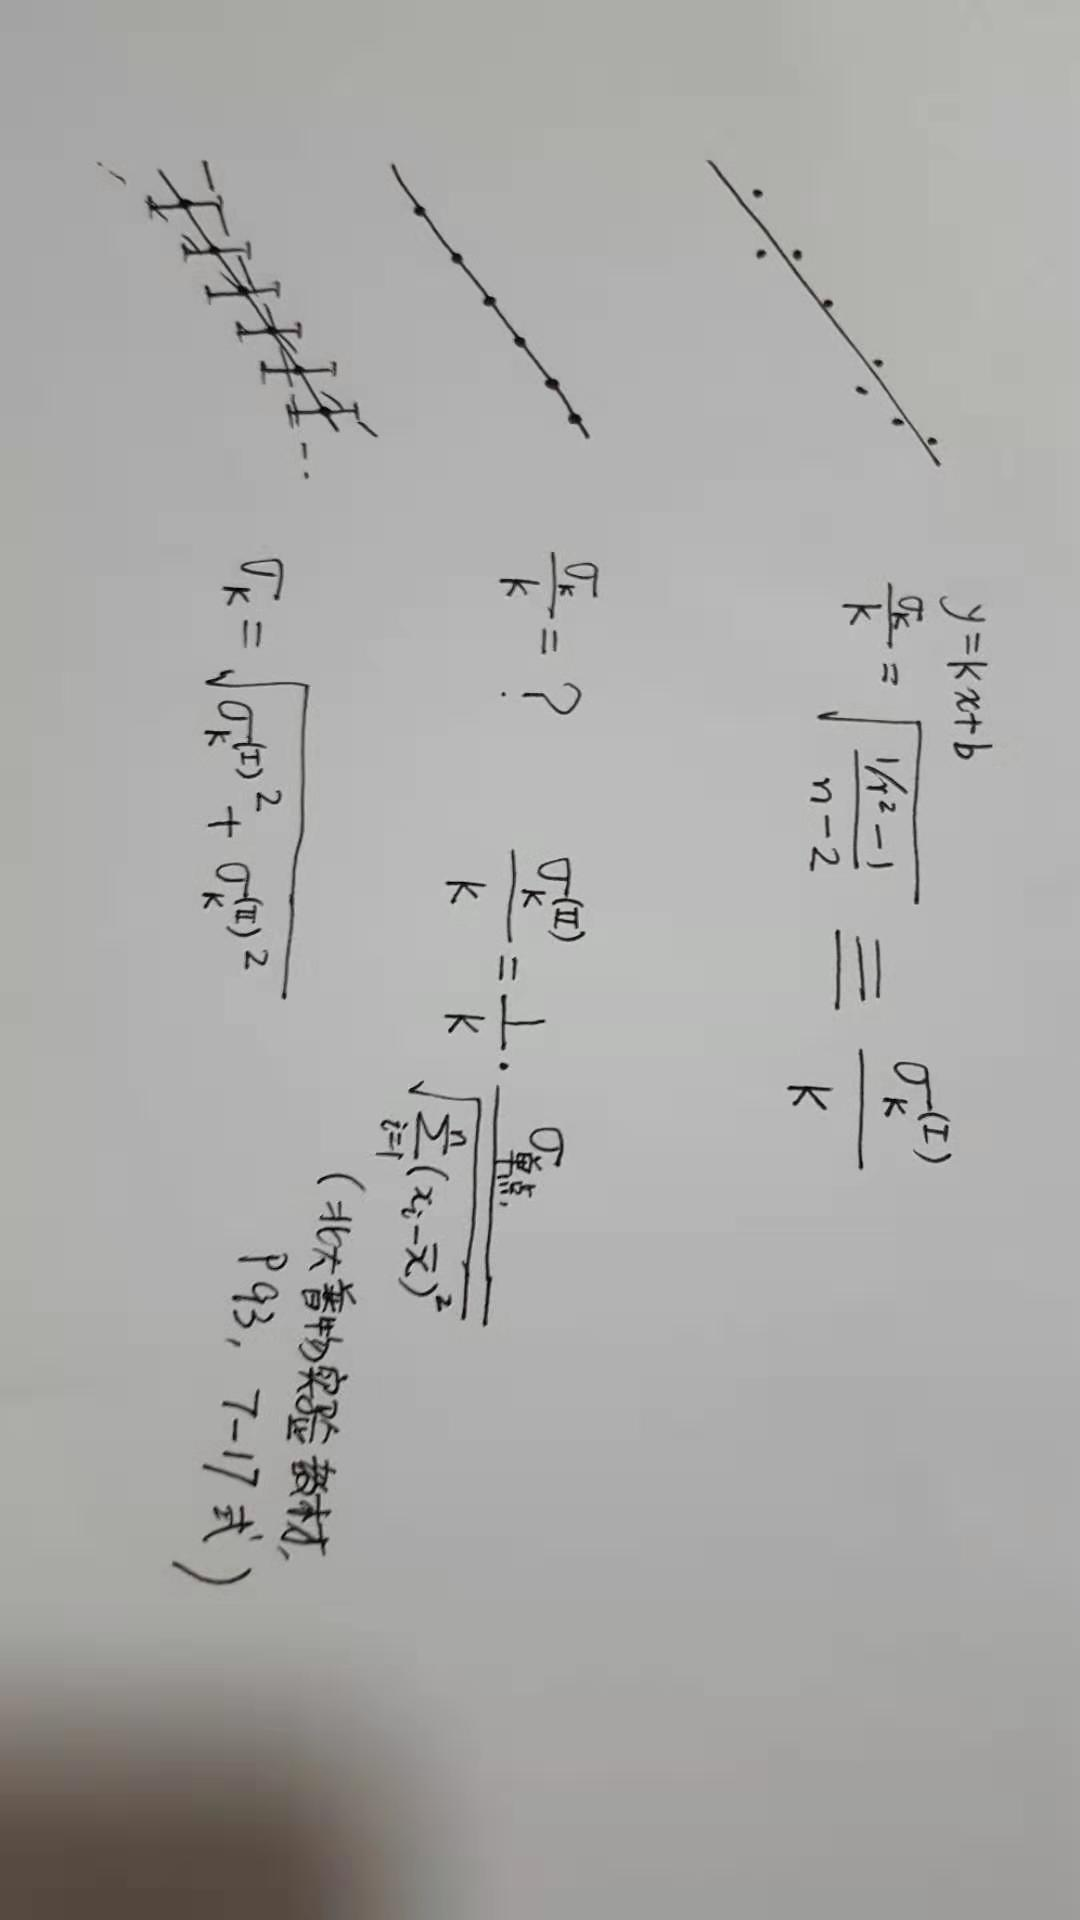 y=kx+b
σ_k/k = √((1/r²-1)/(n-2)) ≡ σ_k^(I)/k
σ_k/k = ? σ_k^(II)/k = 1/k · σ_单点/√(∑_{i=1}^{n}(x_i-x̄)²)
(北大普物实验教材,
P93, 7-17式)
σ_k = √(σ_k^(I)² + σ_k^(II)²)